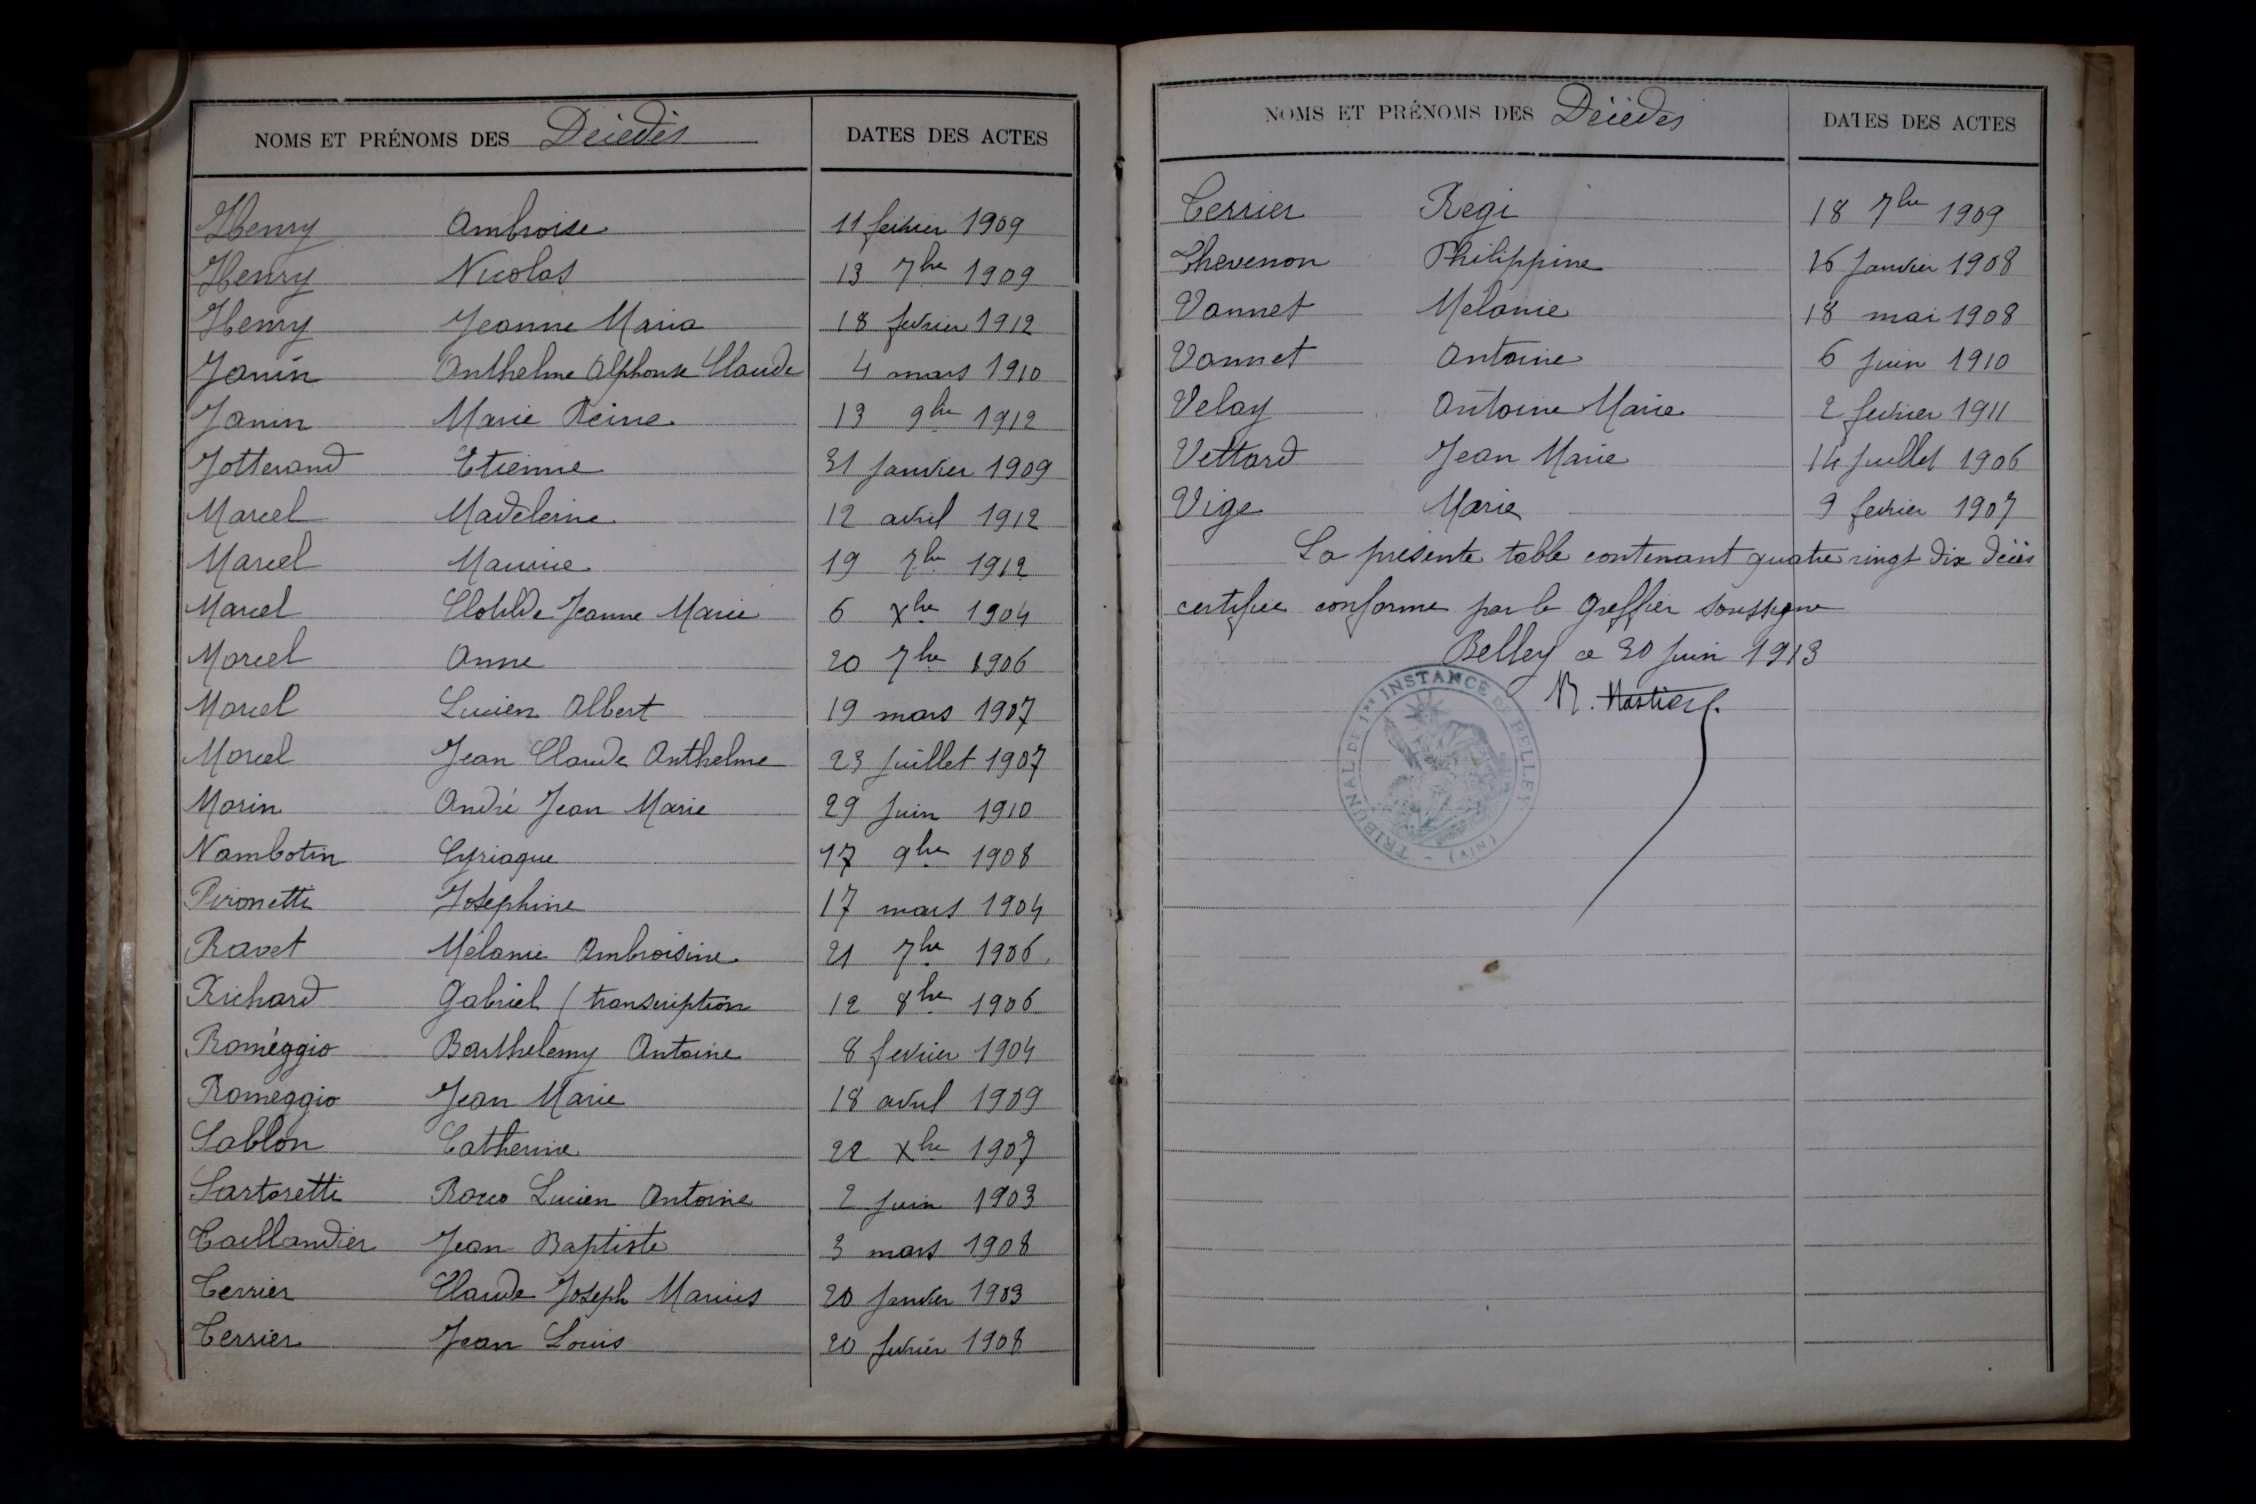 NOMS ET PRÉNOMS DES Décédés DATES DES ACTES
Henry Ambroise 11 février 1909
Henry Nicolas 13 7bre 1909
Henry Jeanne Maria 18 fevrier 1912
Janin Anthelme Alphonse Claude 4 mars 1910
Janin Marie Reine 13 9bre 1912
Jotterand Etienne 31 Janvier 1909
Marcel Madeleine 12 avril 1912
Marcel Maurice 19 7bre 1912
Marcel Clotilde Jeanne Marie 6 Xbre 1904
Marcel Anne 20 7bre 1906
Marcel Lucien Albert 19 mars 1907
Marcel Jean Claude Anthelme 23 Juillet 1907
Morin André Jean Marie 29 Juin 1910
Nambotin Cyriaque 17 9bre 1908
Pironetti Joséphine 17 mars 1904
Ravet Mélanie Ambroisine 21 7bre 1906
Richard Gabriel ( transcription 12 8bre 1906
Roméggio Barthelemy Antoine 8 fevrier 1904
Romeggio Jean Marie 18 avril 1909
Sablon Catherine 22 Xbre 1907
Sartoretti Rocco Lucien Antoine 2 Juin 1903
Taillandier Jean Baptiste 3 mars 1908
Terrier Claude Joseph Marius 20 Janvier 1903
Terrier Jean Louis 20 fevrier 1908
NOMS ET PRÉNOMS DES Décédés DATES DES ACTES
Terrier Regi 18 7bre 1909
Thevenon Philippine 26 Janvier 1908
Vannet Melanie 18 mai 1908
Vannet Antoine 6 Juin 1910
Velay Antoine Marie 2 fevrier 1911
Vettard Jean Marie 14 Juillet 1906
Vige Marie 9 fevrier 1907
La présente table contenant quatre vingt dix décès
certifiée conforme par le Greffier soussigné
Belley ce 30 Juin 1913
TRIBUNAL DE 1re INSTANCE DE BELLEY - (AIN) -